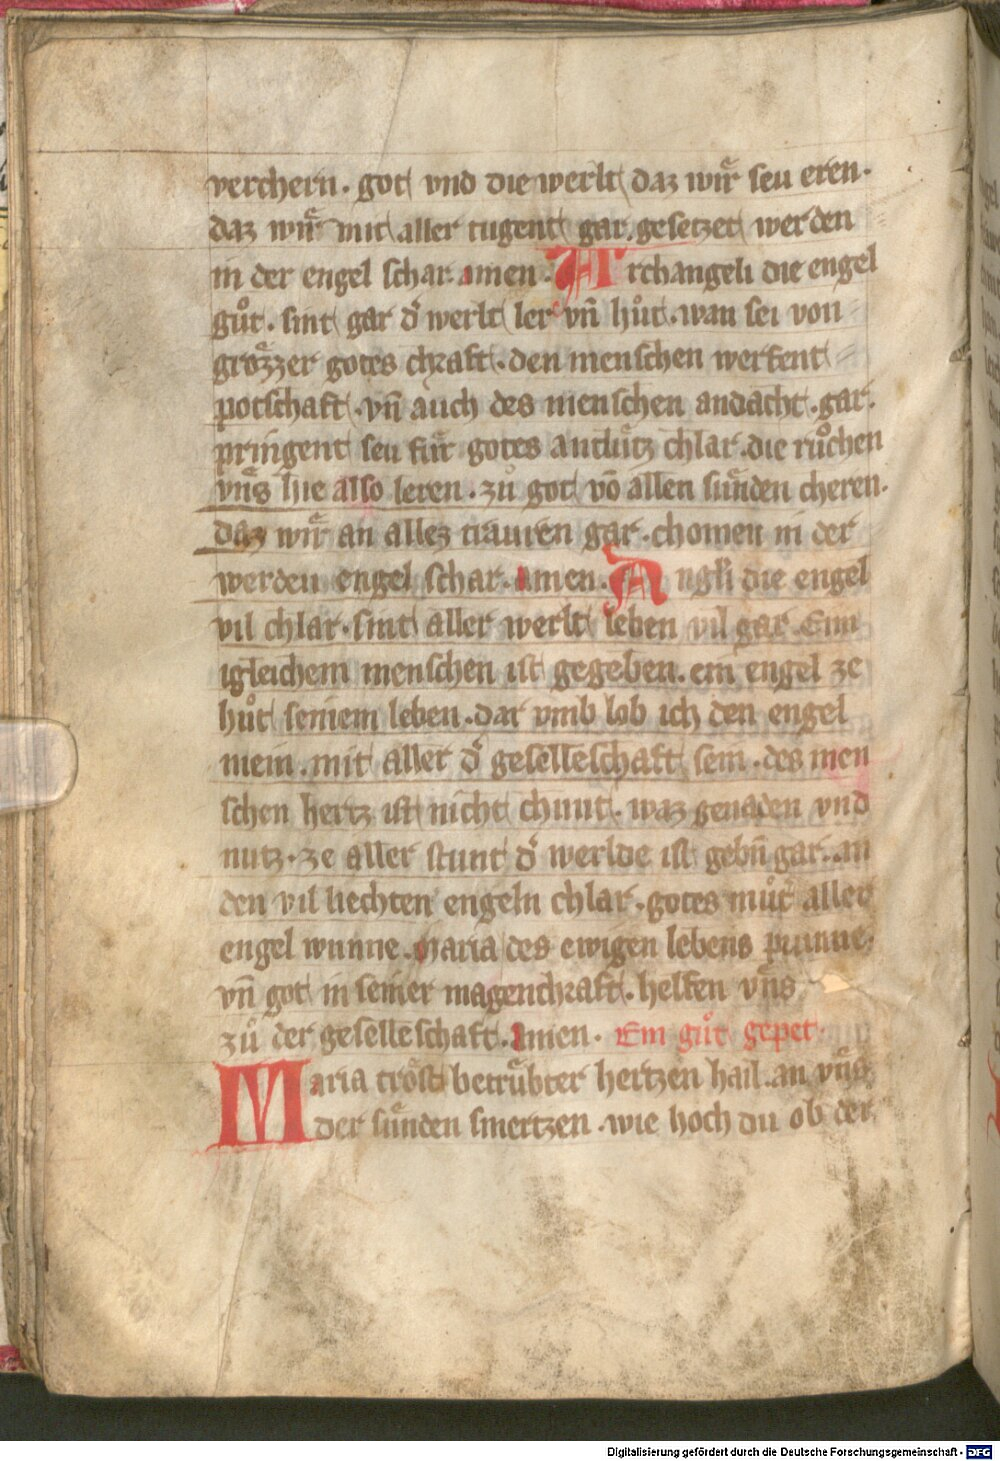 verchern · got vnd die werlt daz wuͤr seu eren ·
daz wuͤr mit aller tugent gar gesetzet werden
in der engel schar · amen · Archangeli die engel
guͦt · sint gar dͤ werlt ler vn̄ huͦt · wan sei von
groͤzzer gotes chraft · den menschen werfent
potschaft · vn̄ auch des menschen andacht · gar ·
pringent seu fuͤr gotes antluͤtz chlar · die ruͦchen
vnͤs hie also leren · zuͦ got võ allen suͤnden cheren ·
daz wuͤr an allez trauren gar · chomen in der
werden engel schar · amen · Angli die engel
vil chlar · sint aller werlt leben vil gar · Eim
igleichem menschen ist gegeben · ein engel ze
huͦt seinem leben · dar vmb lob ich den engel
mein · mit aller dͤ geselleschaft sein · des men
schen hertz ist nicht chunt · waz genaden vnd
nutz · ze aller stunt dͤ werlde ist gebn̄ gar · an
den vil liechten engeln chlar · gotes muͦtͤ aller
engel wunne · maria des ewigen lebens prunne ·
vn̄ got in seiner magenchraft · helfen vnͤs
zuͦ der geselleschaft · Amen · Ein guͦt gepet ·
Maria troͤst betruͤbter hertzen hail · an vnͤs
der suͤnden smertzen · wie hoch du ob der
Digitalisierung gefördert durch die Deutsche Forschungsgemeinschaft - DFG